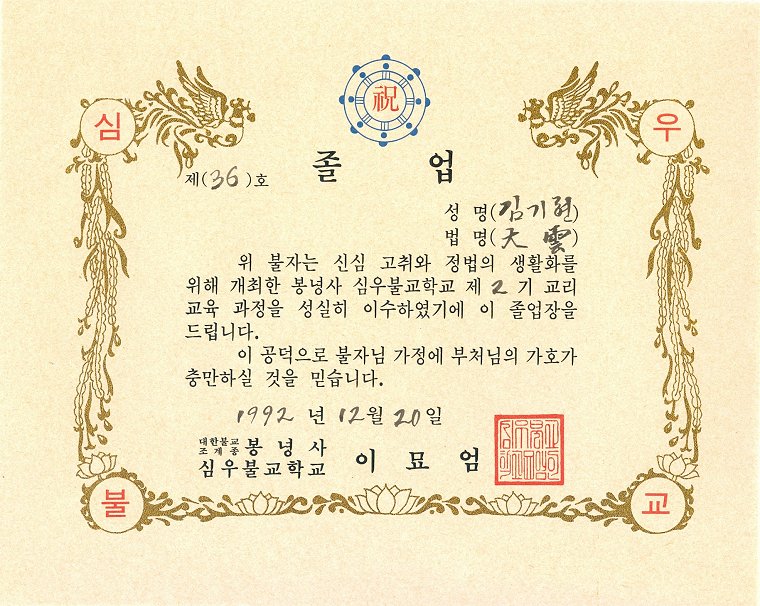 祝
심 우
졸 업
제(36)호
성 명(김기현)
법 명(大雲)
위 불자는 신심 고취와 정법의 생활화를
위해 개최한 봉녕사 심우불교학교 제 2 기 교리
교육 과정을 성실히 이수하였기에 이 졸업장을
드립니다.
이 공덕으로 불자님 가정에 부처님의 가호가
충만하실 것을 믿습니다.
1992 년 12월 20일
대한불교
조계종 봉녕사
심우불교학교 이묘엄
불 교